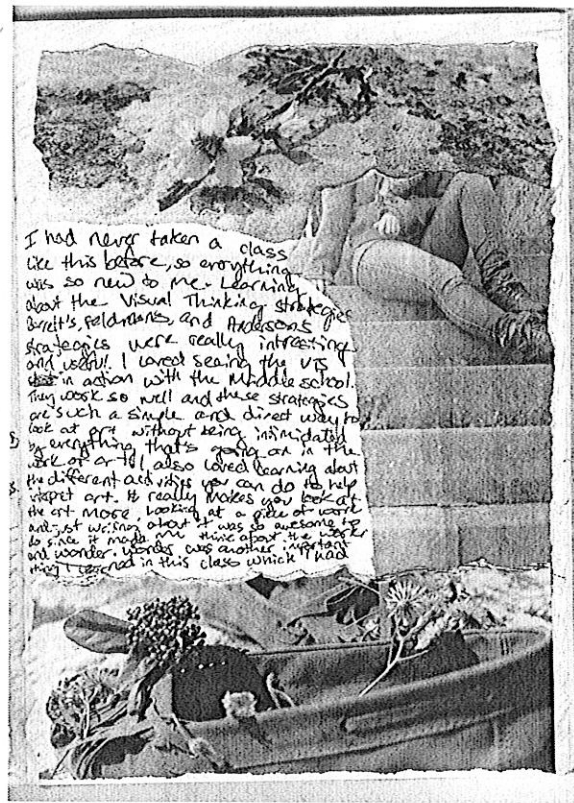 I had never taken a class
like this before, so everything
was so new to me. Learning
about the Visual Thinking Strategies
Barrett's, Feldman's, and Anderson's
strategies were really intresting
and useful! I loved seeing the VTS
in action with the Middle school.
They work so well and these strategies
are such a simple and direct way to
look at art without being intimidated
by everything that's going on in the
work of art! I also loved learning about
the different activities you can do to help
intrpet art. It really makes you look at
the art more. Looking at a piece of work
and just writing about it was so awesome to
do since it made me think about the work
and wonder. Wonder was another important
thing I learned in this class which I had